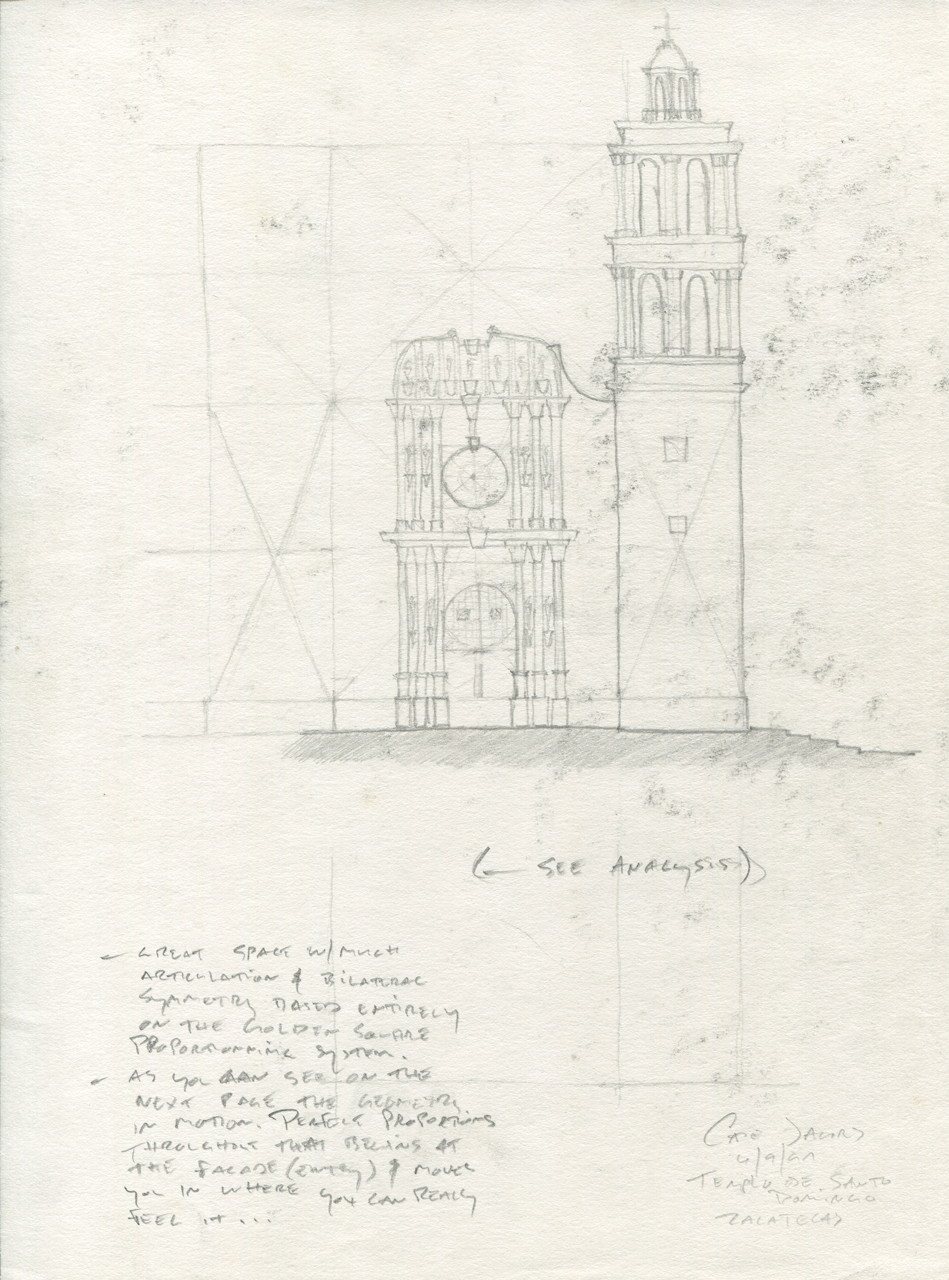 (← SEE ANALYSIS)
- GREAT SPACE W/ MUCH
ARTICULATION & BILATERAL
SYMMETRY BASED ENTIRELY
ON THE GOLDEN SQUARE
PROPORTIONNING SYSTEM.
- AS YOU CAN SEE ON THE
NEXT PAGE THE GEOMETRY
IN MOTION. PERFECT PROPORTIONS
THROUGHOUT THAT BEGINS AT
THE FACADE (ENTRY) & MOVES
YOU IN WHERE YOU CAN REALLY
FEEL IT...
JACOBS
TEMPLO DE SANTO
DOMINGO
ZACATECAS